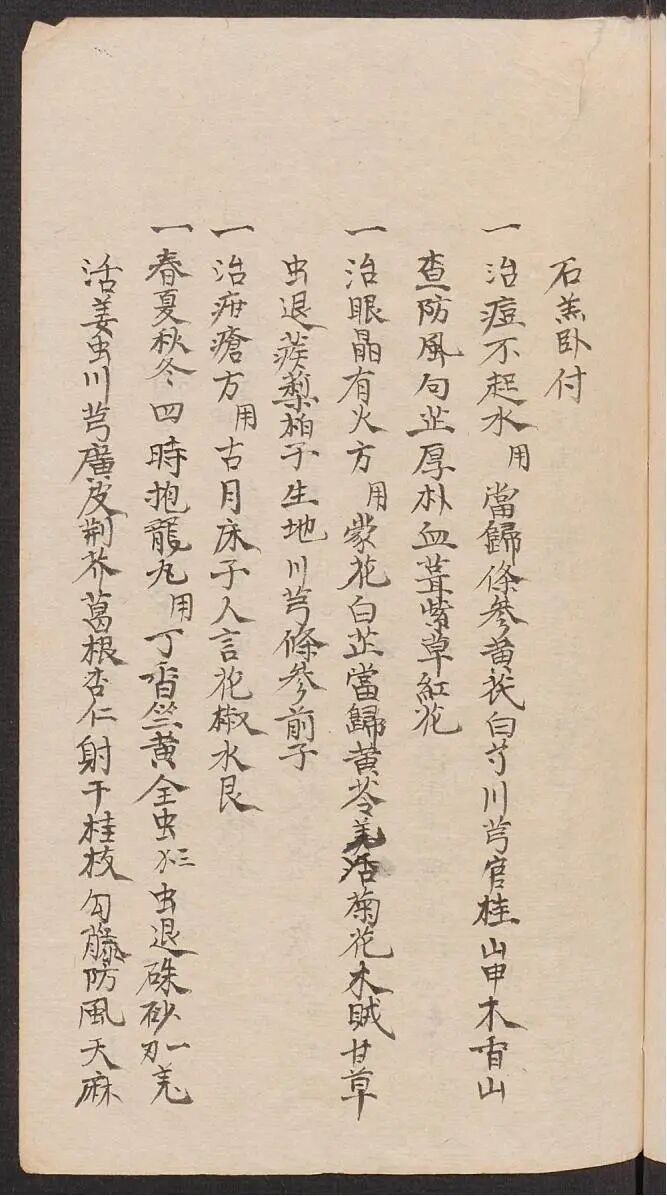 石羔卧付
一治痘不起水用當歸條參黃芪白芍川芎官桂山甲木香山
查防風白芷厚朴血茸紫草紅花
一治眼晶有火方用蒙花白芷當歸黃芩羌活菊花木賊甘草
虫退蒺藜柏子生地川芎條參前子
一治疳瘡方用古月床子人言花椒水艮
一春夏秋冬四時抱龍丸用丁香竺黃全虫虫退硃砂羌
活姜虫川芎廣皮荆芥葛根杏仁射干桂枝勾藤防風天麻